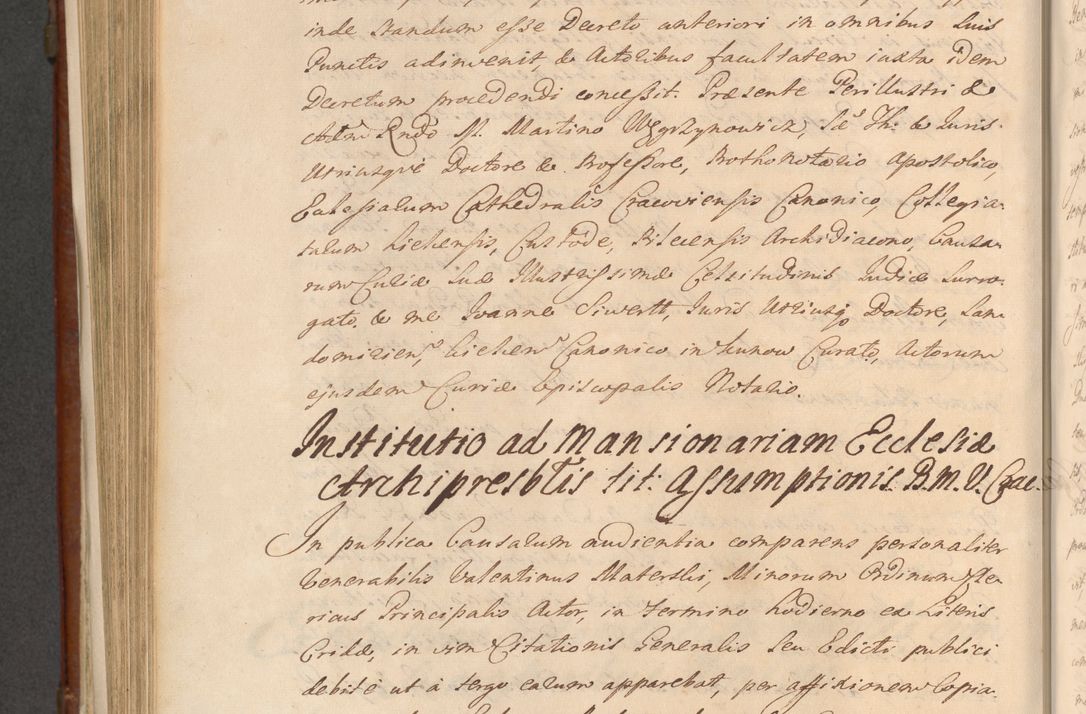 inde standum esse Decreto anteriori in omnibus suis
Punctis adinvenit, & Actoribus facultatem iuxta idem
Decretum procedendi concessit. Præsente Perillustri &
Adm Rndo M. Martino Węgrzynowicz, Sæ Th: & Juris
Utriusque Doctore & Professore, Prothonotario Apostolico,
Ecclesiarum Cathedralis Cracoviensis Canonico, Collegia-
tarum Kielcensis, Custode, Pilecensis Archidiacono, Causa-
rum Curiæ Suæ Illustrissimæ Celsitudinis Judice Surro-
gato. & me Joanne Siwertt, Juris Utriusq Doctore, San-
domirien, Kielcen Canonico in Kunow Curato, Actorum
ejusdem Curiæ Episcopalis Notario.
Institutio ad Mansionariam Ecclesiæ
Archipresbtlis tit: Assumptionis B.M.V. Crac.
In publica Causarum audientia comparens personaliter
Venerabilis Valentinus Materski, Minorum Ordinum Cle-
ricus Principalis Actor, in termino hodierno ex Literis
Cridæ, in vim Citationis Generalis seu Edicti publici
debitè ut à tergo earum apparebat, per affixionem Copia-